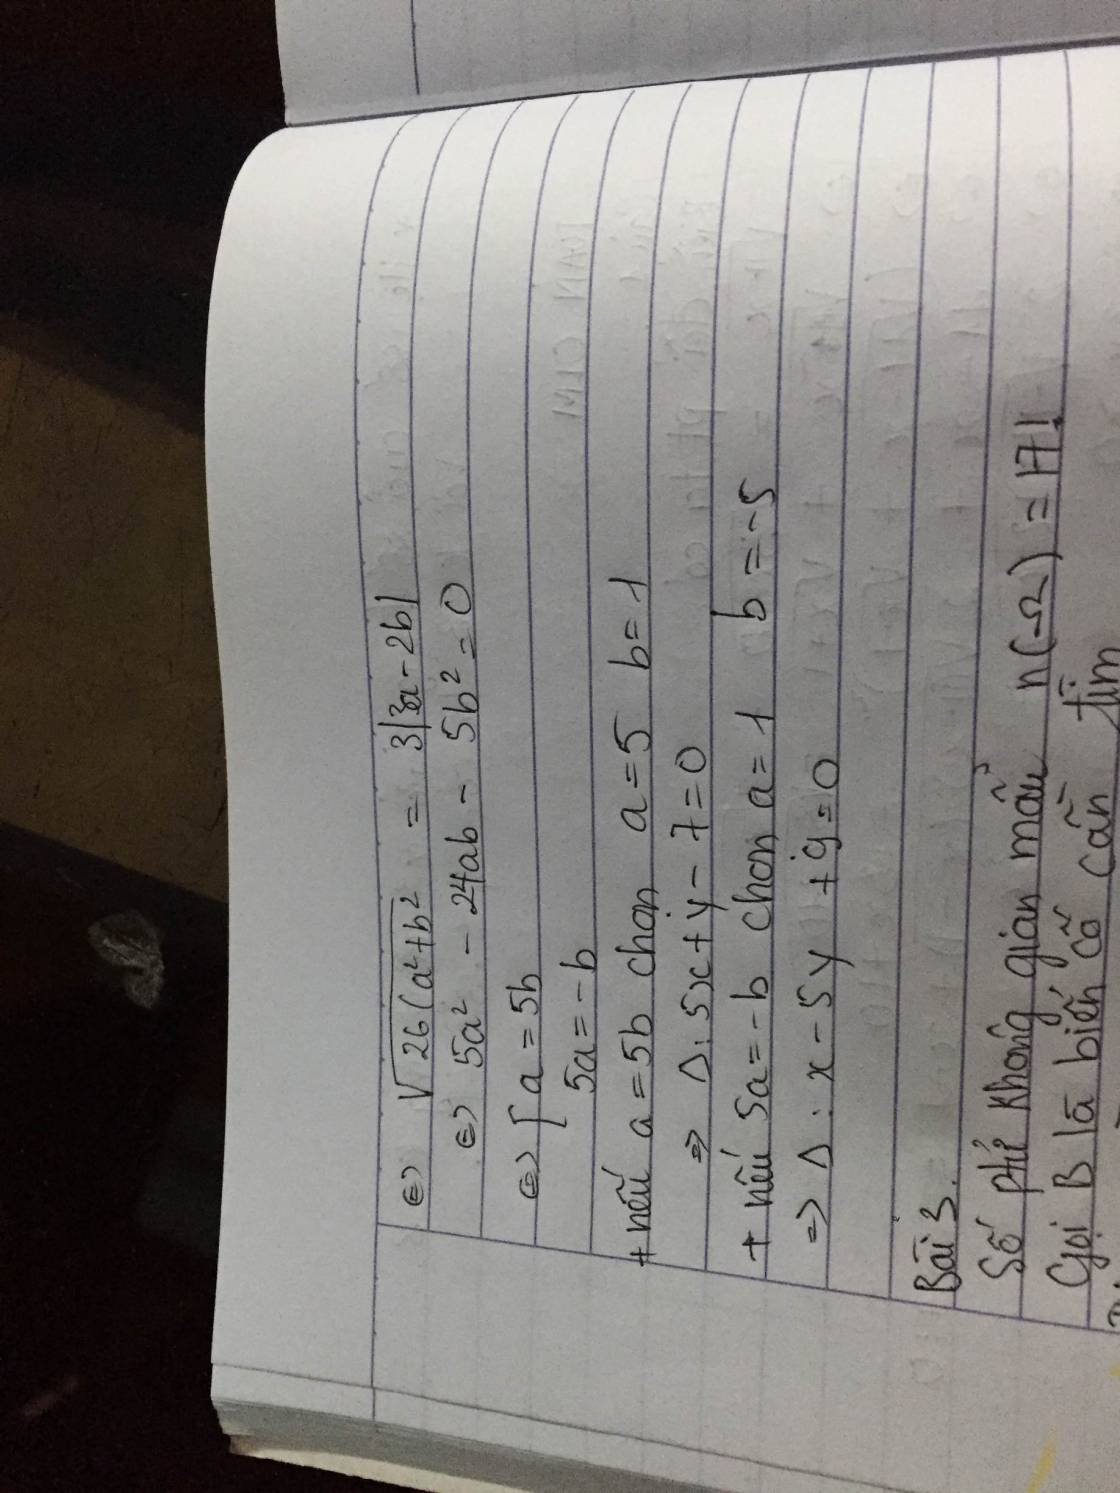 ⇔ √26(a²+b²) = 3|3a-2b|
⇔ 5a² - 24ab - 5b² = 0
⇔ [ a = 5b
5a = -b
+ nếu a = 5b chọn a = 5 b = 1
⇒ Δ: 5x + y - 7 = 0
+ nếu 5a = -b chọn a = 1 b = -5
⇒ Δ: x - 5y + 9 = 0
Bài 3.
Số phtử không gian mẫu n(Ω) = 17!
Gọi B là biến cố cần tìm